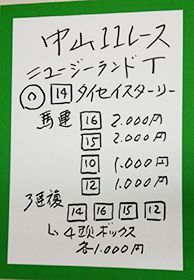 中山11レース
ニュージーランドT
◎ 14 タイセイスターリー
馬連 16 2.000円
15 2.000円
10 1.000円
12 1.000円
3連複
14 16 15 12
↳ 4頭ボックス
各1.000円